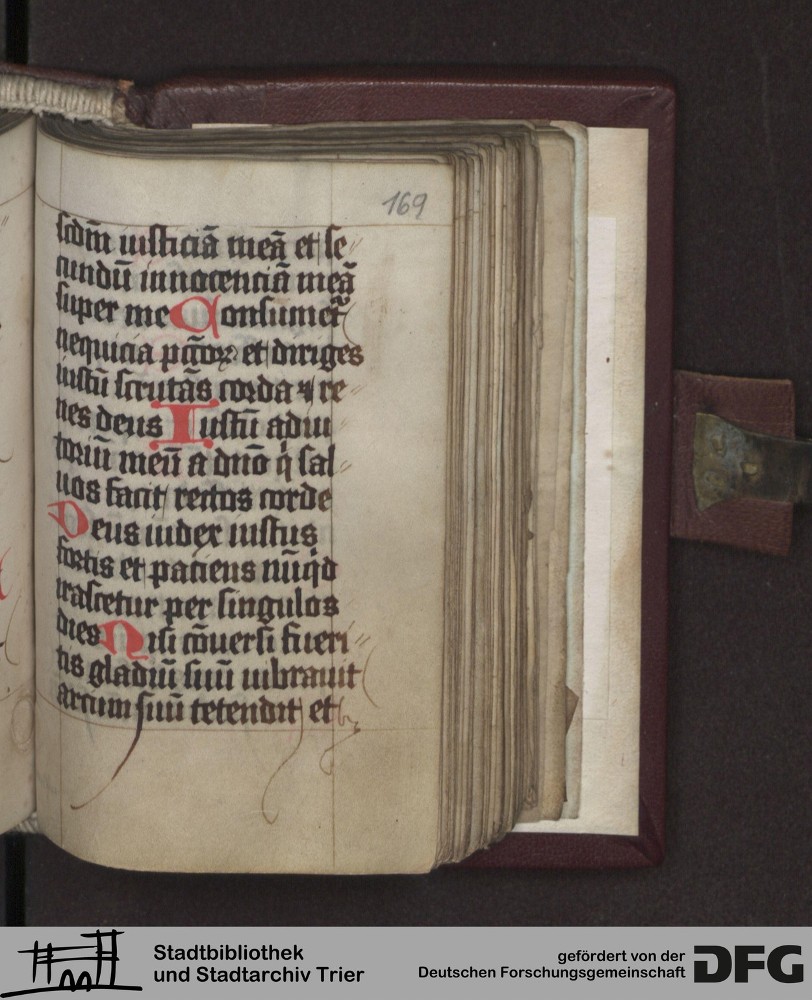 169
scdm̄ iusticiā meā et se
cundū innocenciā meā
super me Consumet̃
nequicia pc̄tor̃ et diriges
iustū scrutās corda ⁊ re
nes deus Iustū adiu
toriū meū a dn̄o q̇ sal
uos facit rectos corde
Deus iudex iustus
fortis et paciens nūq̇d
irascetur per singulos
dies Nisi cōuersi fueri
tis gladiū suū uibrauit
arcum suū tetendit et
Stadtbibliothek
und Stadtarchiv Trier
gefördert von der
Deutschen Forschungsgemeinschaft
DFG